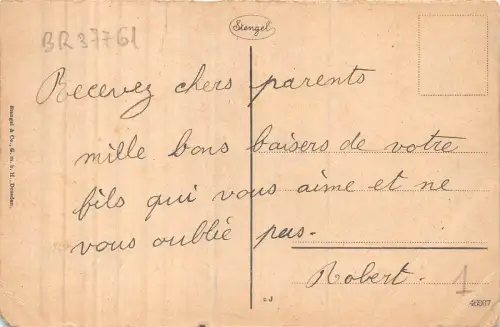 BR37761
Stengel
Recevez chers parents
mille bons baisers de votre
fils qui vous aime et ne
vous oublié pas.
Robert.
1
Stengel & Co., G. m. b. H., Dresden.